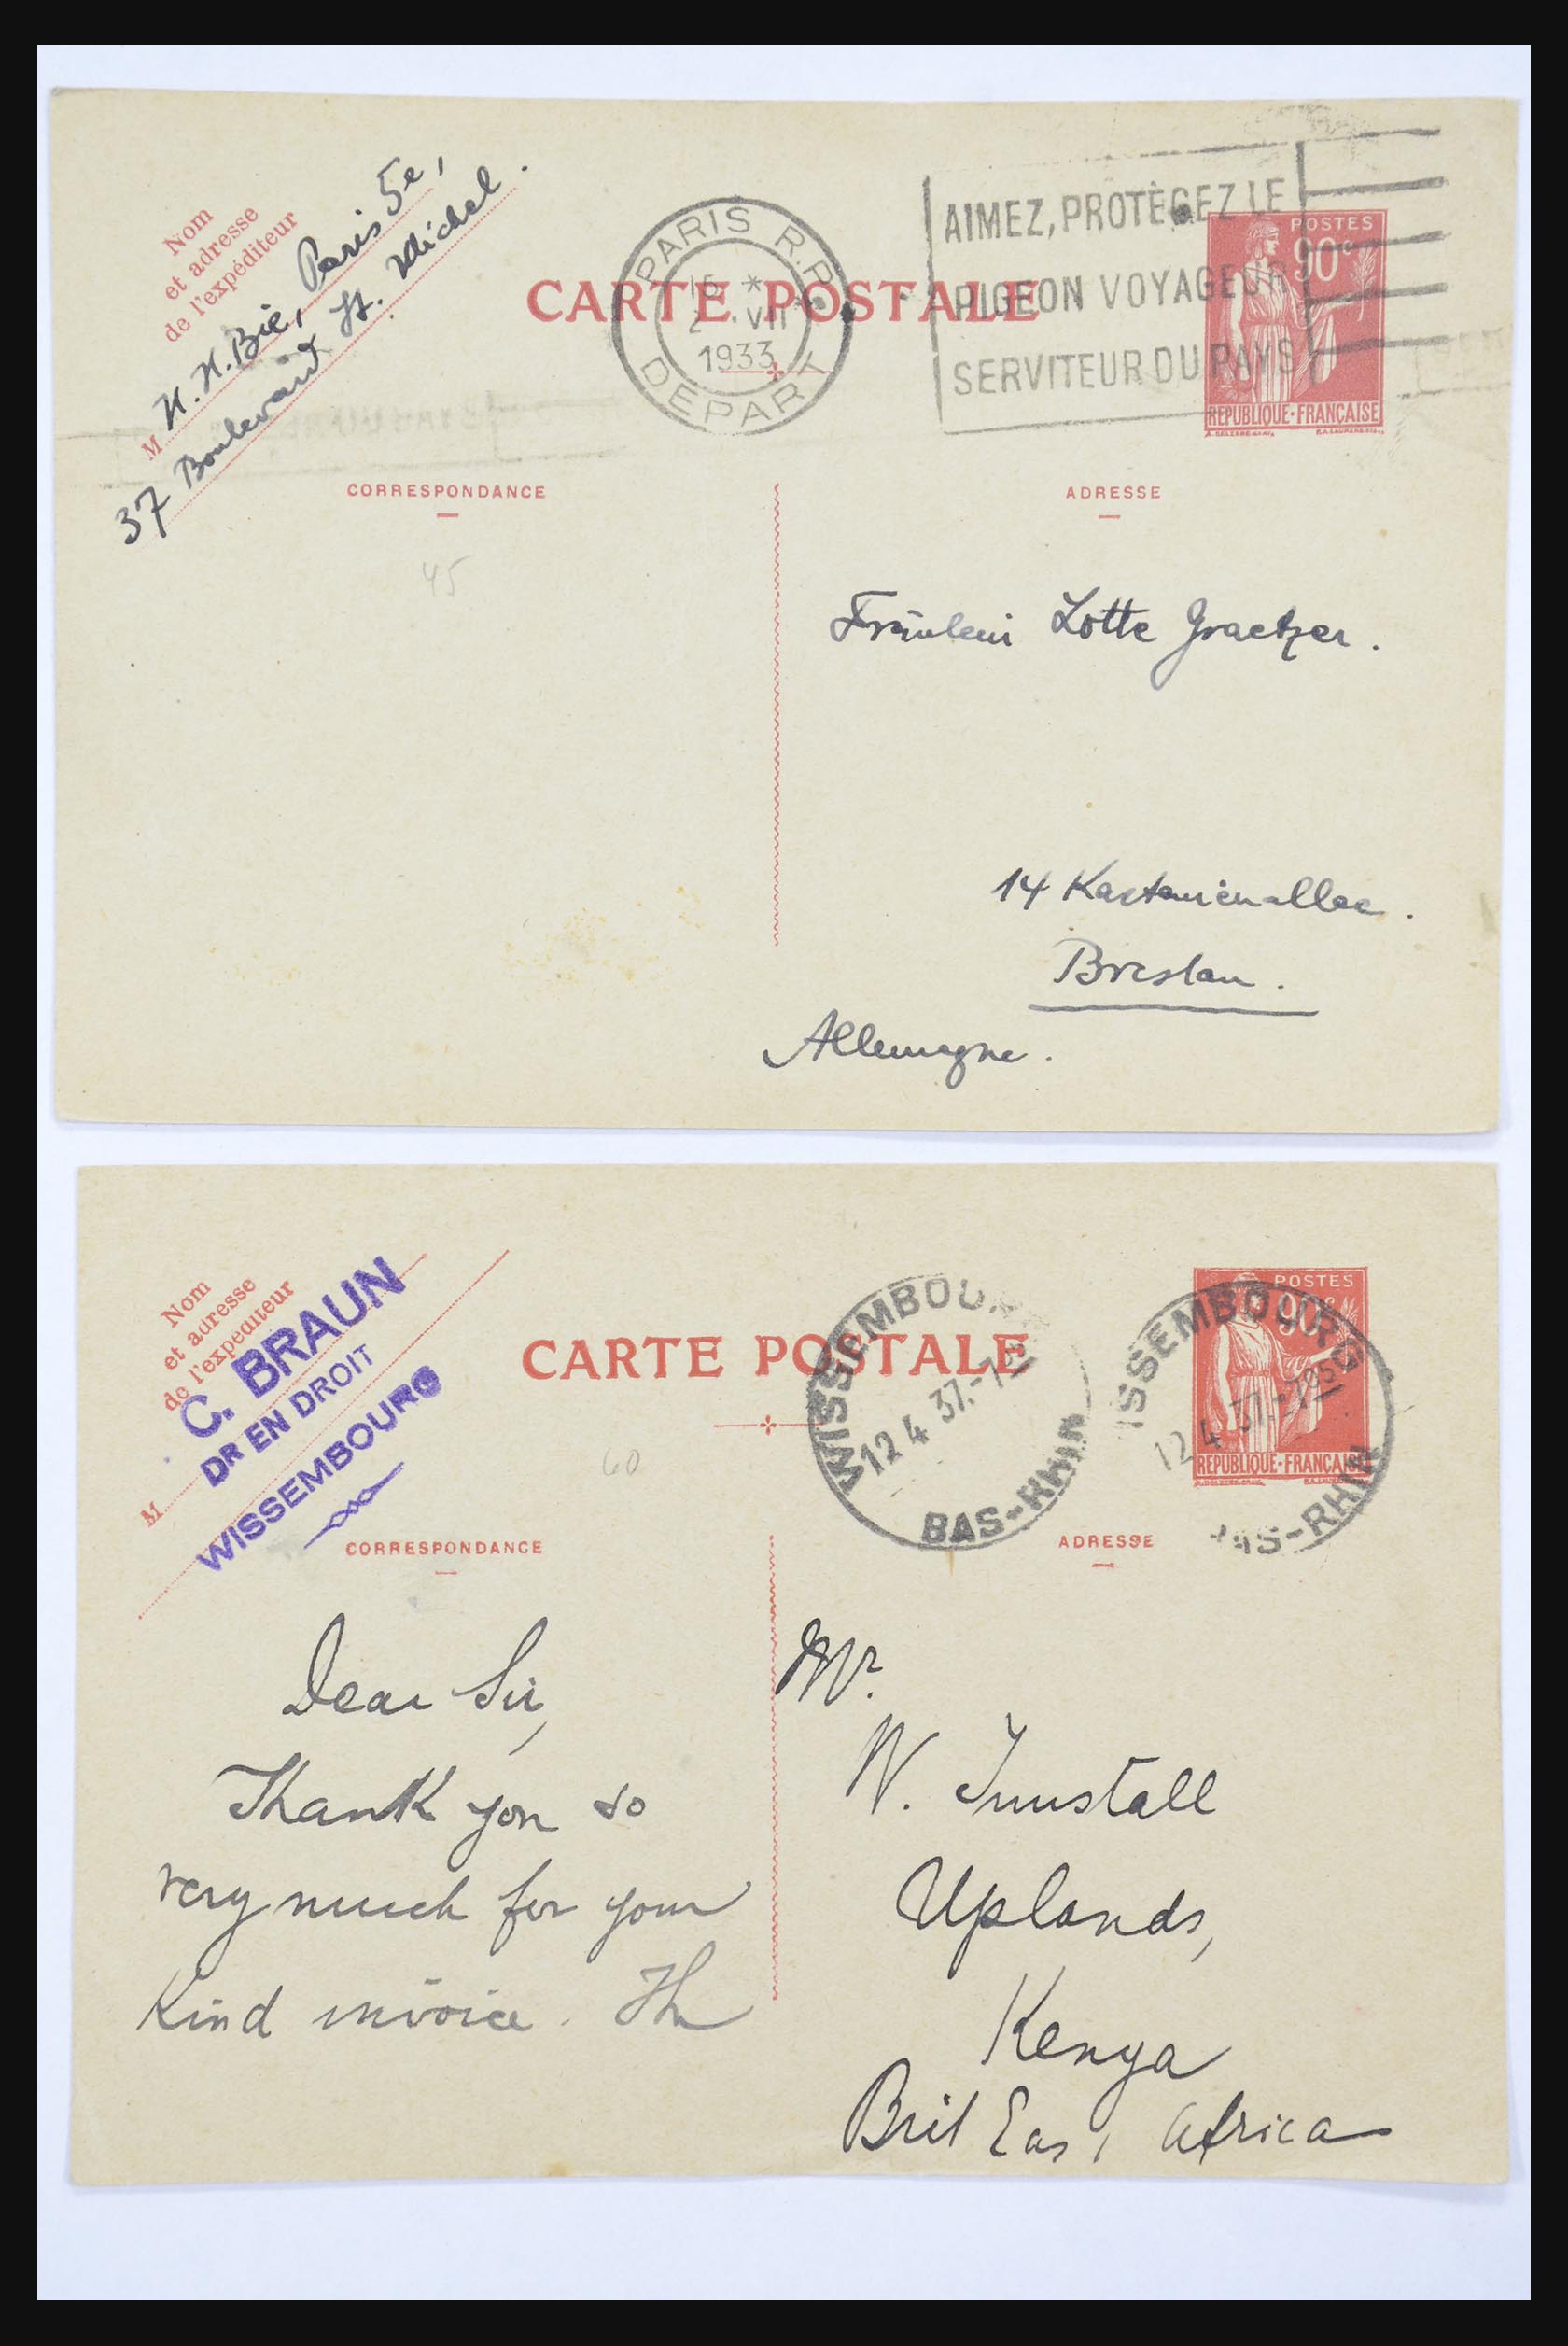 Nom
et adresse
de l'expéditeur
M H. H. Bie, Paris 5e,
37 Boulevard St. Michel.
CARTE POSTALE
PARIS R.P.
15 *
2 VII
1933
DEPART
AIMEZ, PROTÉGEZ LE
PIGEON VOYAGEUR
SERVITEUR DU PAYS
POSTES
90c
REPUBLIQUE·FRANÇAISE
CORRESPONDANCE
ADRESSE
45
Fräulein Lotte Graetzer.
14 Kastanienallee.
Breslau.
Allemagne.
Nom
et adresse
de l'expéditeur
M
C. BRAUN
DR EN DROIT
WISSEMBOURG
CARTE POSTALE
WISSEMBOURG
12 4 37.
BAS-RHIN
WISSEMBOURG
12 4 37.
BAS-RHIN
POSTES
90c
REPUBLIQUE·FRANÇAISE
60
CORRESPONDANCE
ADRESSE
Dear Sir,
Thank you so
very much for your
kind invoice. Th
Mr.
W. Tunstall
Uplands,
Kenya
Brit East Africa